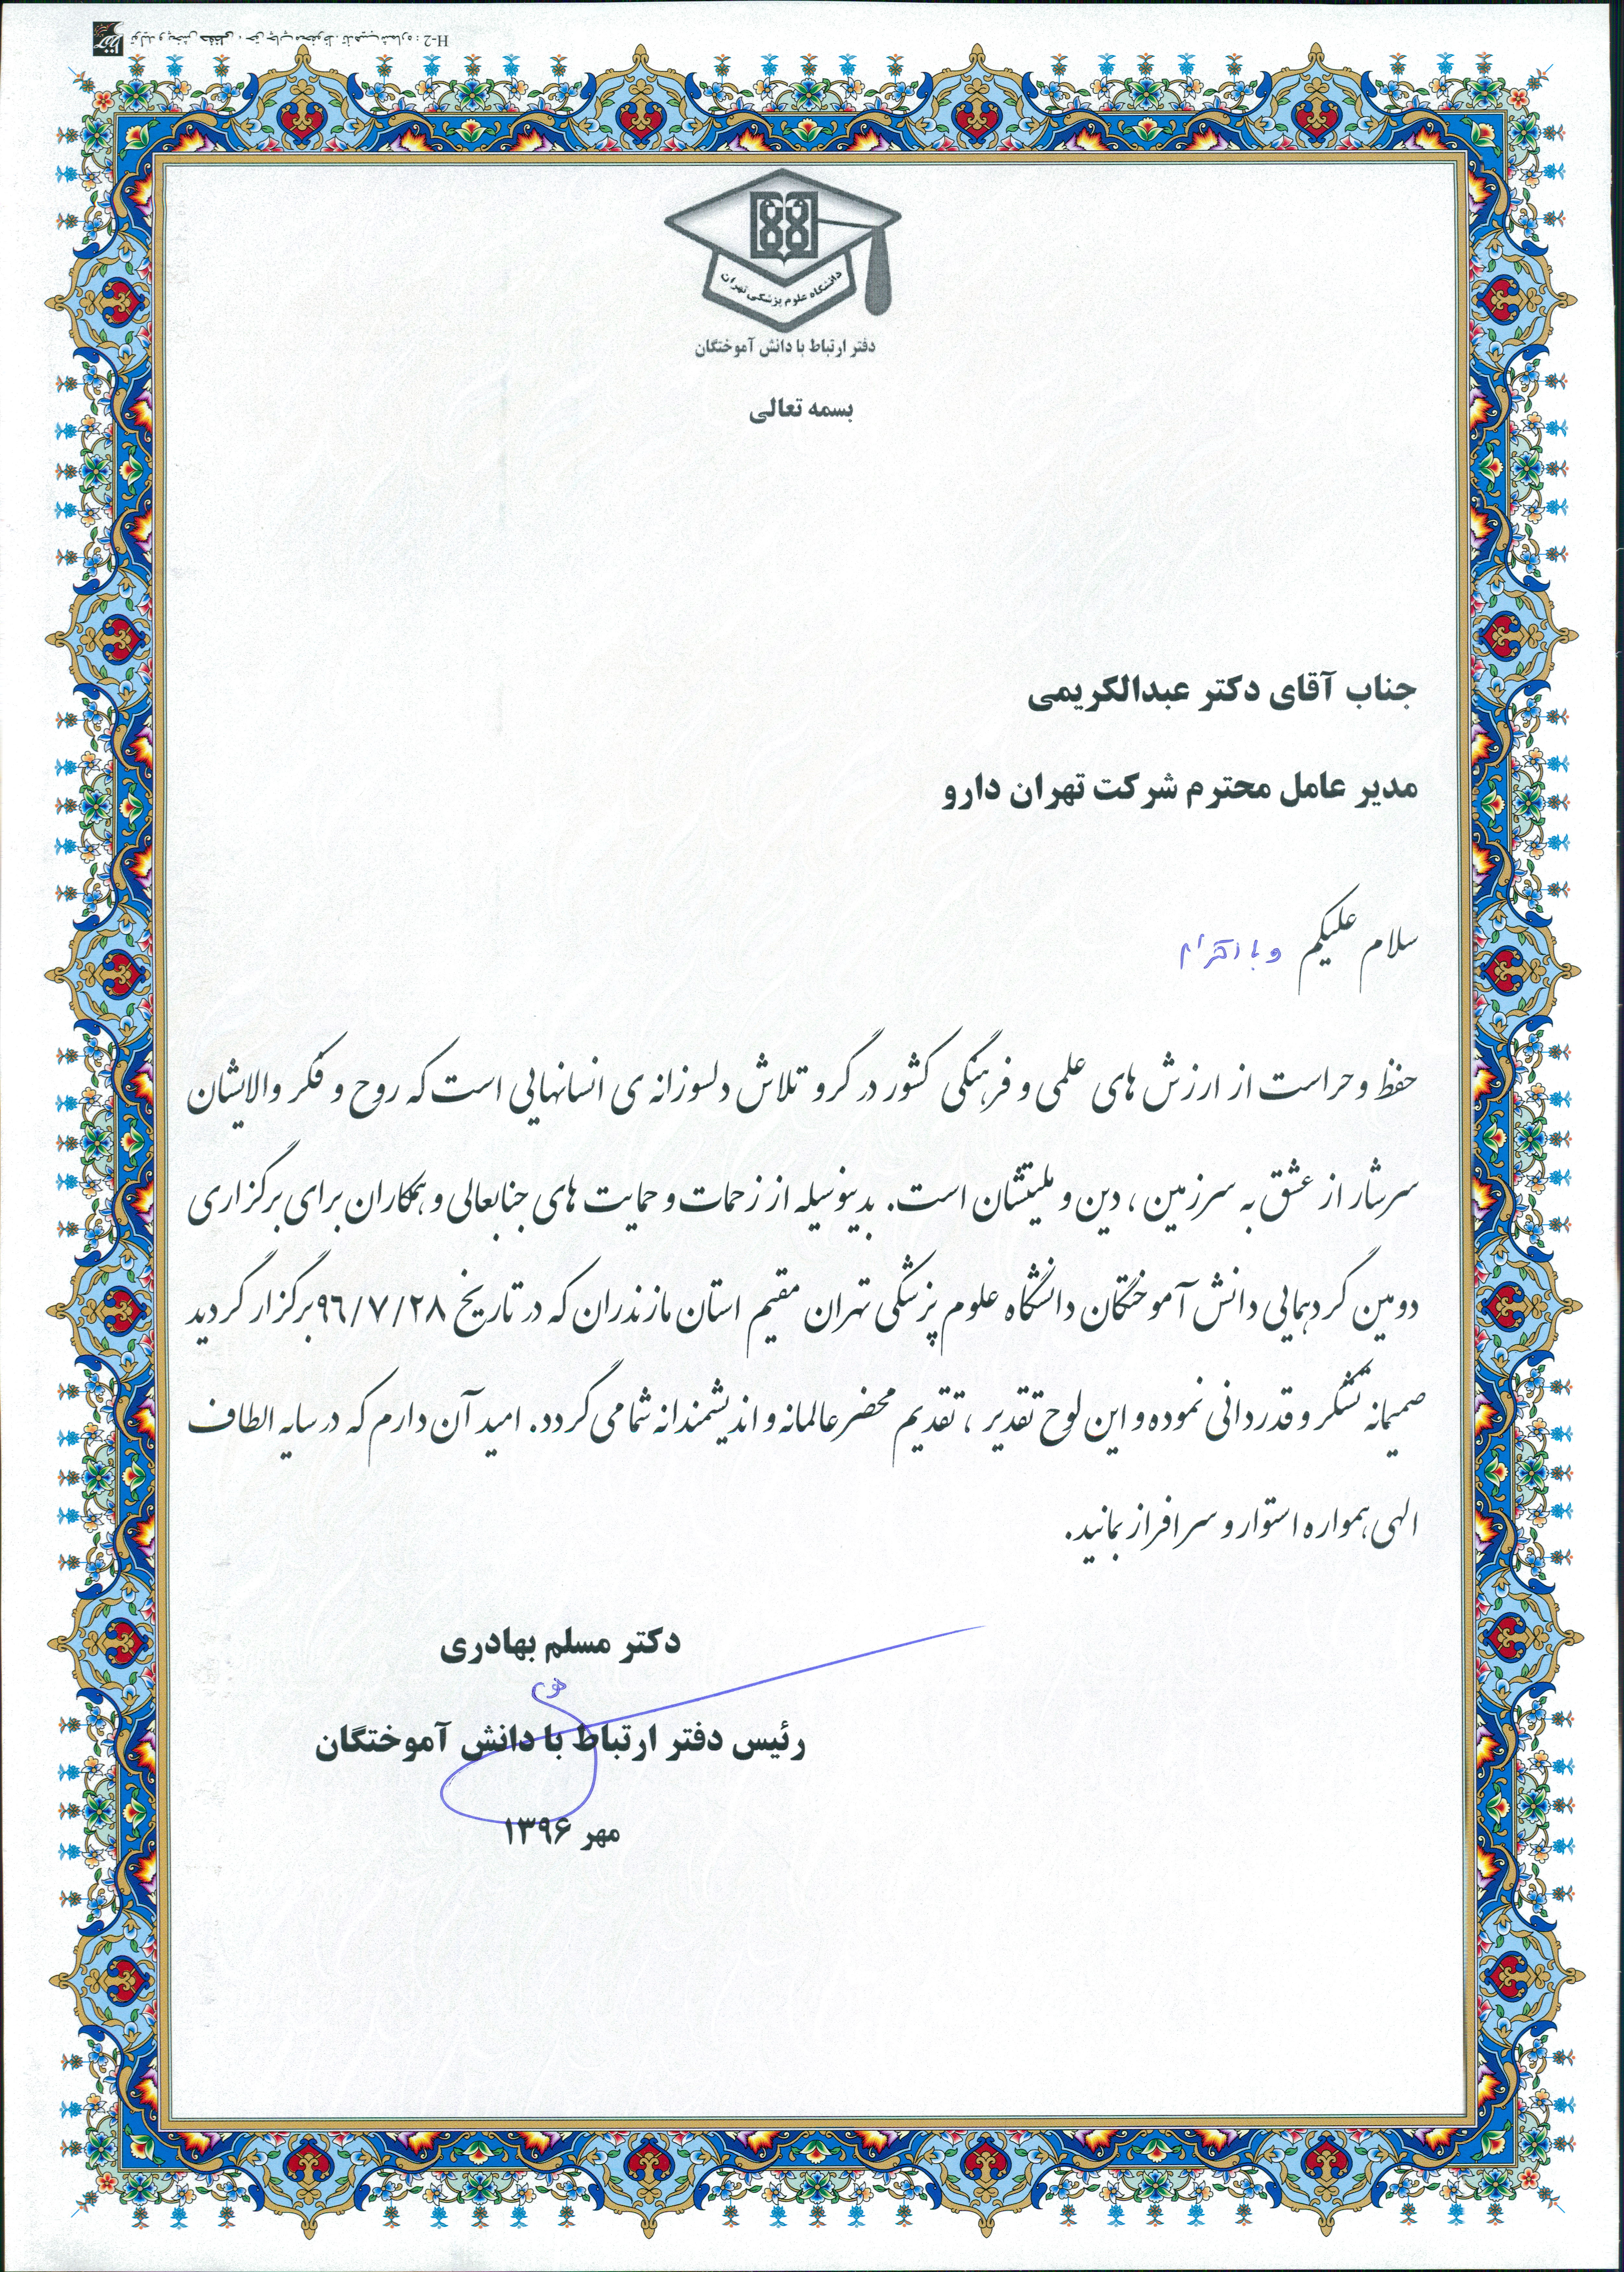 دانشگاه علوم پزشکی تهران
دفتر ارتباط با دانش آموختگان
بسمه تعالی
جناب آقای دکتر عبدالکریمی
مدیر عامل محترم شرکت تهران دارو
سلام علیکم و با احترام
حفظ و حراست از ارزش های علمی و فرهنگی کشور در گرو تلاش دلسوزانه ی انسانهایی است که روح و فکر والایشان
سرشار از عشق به سرزمین ، دین و ملیتشان است. بدینوسیله از زحمات و حمایت های جنابعالی و همکاران برای برگزاری
دومین گردهمایی دانش آموختگان دانشگاه علوم پزشکی تهران مقیم استان مازندران که در تاریخ ۹۶/۷/۲۸ برگزار گردید
صمیمانه تشکر و قدردانی نموده و این لوح تقدیر ، تقدیم محضر عالمانه و اندیشمندانه شما می گردد. امید آن دارم که در سایه الطاف
الهی همواره استوار و سرافراز بمانید.
دکتر مسلم بهادری
رئیس دفتر ارتباط با دانش آموختگان
مهر ۱۳۹۶